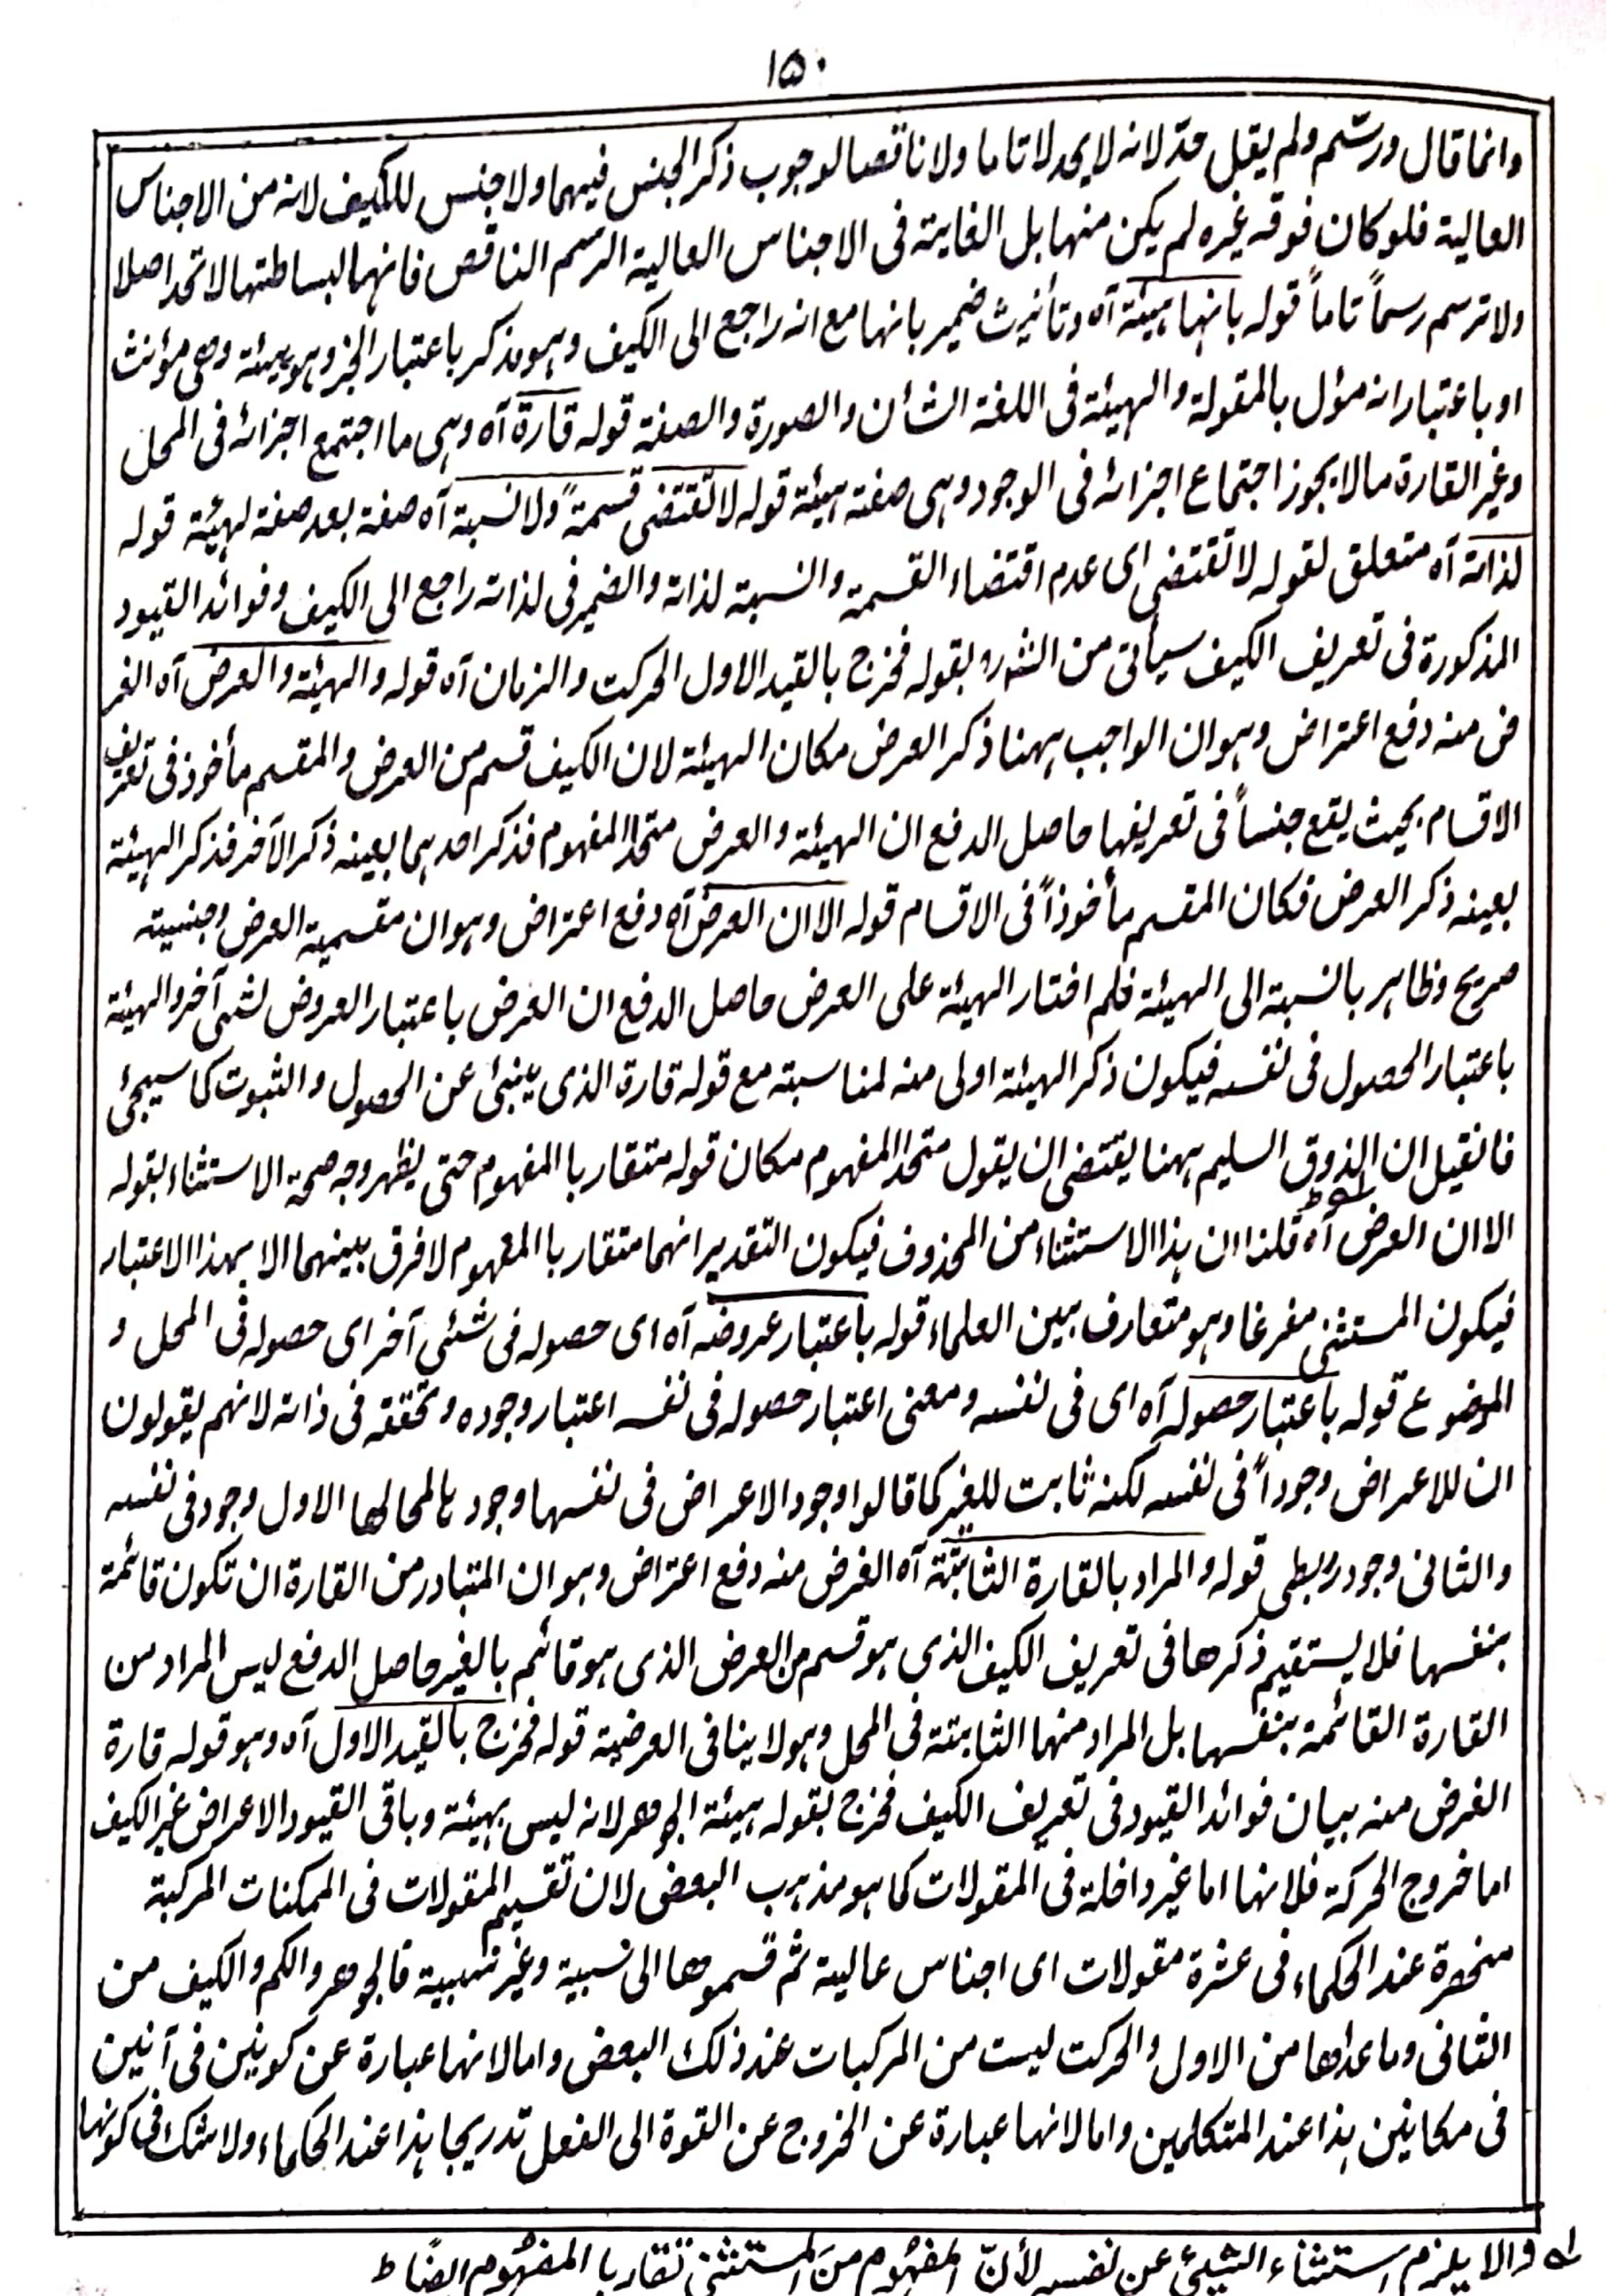 ۱۵۰
وانما قال ورسم ولم يقبل حد لانه لا يحد لا تاما ولا ناقصا لوجوب ذكر الجنس فيهما ولا جنس للكيف لانه من الاجناس
العالية فلو كان فوقه غيره لم يكن منها بل الغاية فى الاجناس العالية الرسم الناقص فانها لبساطتها لا تحد اصلا
ولا ترسم رسماً تاماً قوله بانها هيئة آه وتأنيث ضمير بانها مع انه راجع الى الكيف وهو مذكر باعتبار الخبر وهو هيئة وهى مؤنث
او باعتبار انه مؤل بالمقولة والهيئة فى اللغة الشأن والصورة والصفة قوله قارة آه وهى ما اجتمع اجزائه فى المحل
وغير القارة ما لا يجوز اجتماع اجزائه فى الوجود وهى صفة هيئة قوله لا تقتضى قسمةً ولا نسبة آه صفة بعد صفة لهيئة قوله
لذاته آه متعلق لقوله لا تقتضى اى عدم اقتضاء القسمة والنسبة لذاته والضمير فى لذاته راجع الى الكيف وفوائد القيود
المذكورة فى تعريف الكيف سيأتى من الشارح بقوله فخرج بالقيد الاول الحركت والزمان آه قوله والهيئة والعرض آه الغر
ض منه دفع اعتراض وهو ان الواجب ههنا ذكر العرض مكان الهيئة لان الكيف قسم من العرض والمقسم مأخوذ فى تعريف
الاقسام بحيث يقع جنساً فى تعريفها حاصل الدفع ان الهيئة والعرض متحدا المفهوم فذكر احدهما بعينه ذكر الآخر فذكر الهيئة
بعينه ذكر العرض فكان المقسم مأخوذاً فى الاقسام قوله الا ان العرض آه دفع اعتراض وهو ان مقسمية العرض وجنسيته
صريح وظاهر بالنسبة الى الهيئة فلم اختار الهيئة على العرض حاصل الدفع ان العرض باعتبار العروض لشئ آخر والهيئة
باعتبار الحصول فى نفسه فيكون ذكر الهيئة اولى منه لمناسبته مع قوله قارة الذى ينبئ عن الحصول والثبوت كما سيجئ
فانقيل ان الذوق السليم ههنا يقتضى ان يقول متحدا المفهوم مكان قوله متقاربا المفهوم حتى يظهر وجه صحة الاستثناء بقوله
الا ان العرض آه قلنا ان هذا الاستثناء من المحذوف فيكون التقدير انهما متقاربا المفهوم لا فرق بينهما الا بهذا الاعتبار
فيكون المستثنى مفرغا وهو متعارف بين العلماء قوله باعتبار عروضه آه اى حصوله فى شئى آخر اى حصوله فى المحل و
الموضوع قوله باعتبار حصوله آه اى فى نفسه ومعنى اعتبار حصوله فى نفسه اعتبار وجوده وتحققه فى ذاته لانهم يقولون
ان للاعراض وجوداً فى نفسه لكنه ثابت للغير كما قالوا وجود الاعراض فى نفسها وجودها لمحالها الاول وجود فى نفسه
والثانى وجود ربطى قوله والمراد بالقارة الثابتة آه الغرض منه دفع اعتراض وهو ان المتبادر من القارة ان تكون قائمة
بنفسها فلا يستقيم ذكرها فى تعريف الكيف الذى هو قسم من العرض الذى هو قائم بالغير حاصل الدفع ليس المراد من
القارة القائمة بنفسها بل المراد منها الثابتة فى المحل وهو لا ينافى العرضية قوله فخرج بالقيد الاول آه وهو قوله قارة
الغرض منه بيان فوائد القيود فى تعريف الكيف فخرج بقوله هيئة الجوهر لانه ليس بهيئة وباقى القيود الاعراض غير الكيف
اما خروج الحركة فلانها اما غير داخلة فى المقولات كما هو مذهب البعض لان تقسيم المقولات فى الممكنات المركبة
منحصرة عند الحكماء فى عشرة مقولات اى اجناس عالية ثم قسموها الى نسبية وغير نسبية فالجوهر والكم والكيف من
الثانى وما عداها من الاول والحركت ليست من المركبات عند ذلك البعض واما لانها عبارة عن كونين فى آنين
فى مكانين هذا عند المتكلمين واما لانها عبارة عن الخروج عن القوة الى الفعل تدريجا هذا عند الحكماء ولا شك فى كونها
له والا يلزم استثناء الشيئ عن نفسه لأنّ المفهوم من المستثنى تقاربا المفهوم ايضًا ط